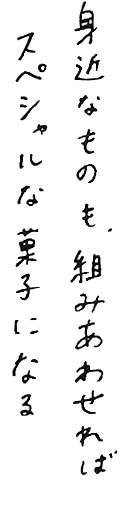 身近なものも、組みあわせれば
スペシャルな菓子になる